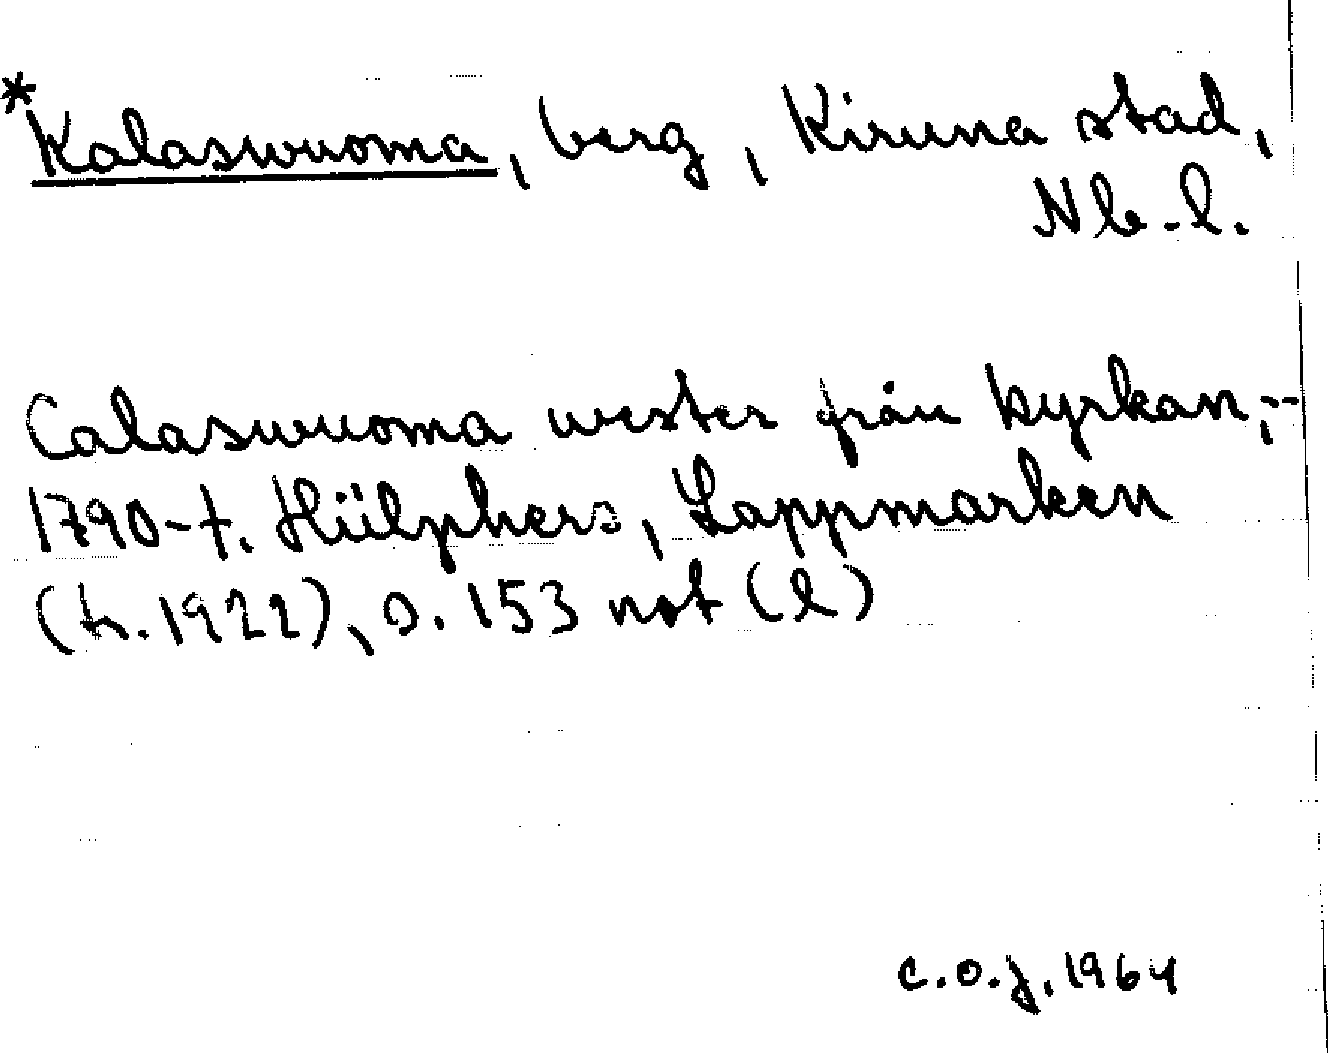 *Kalaswuoma, berg, Kiruna stad,
Nb-l.
Calaswuoma wester från kyrkan,--
1790-t. Hülphers, Lappmarken
(tr. 1922), s. 153 not (l)
C.O.J. 1964